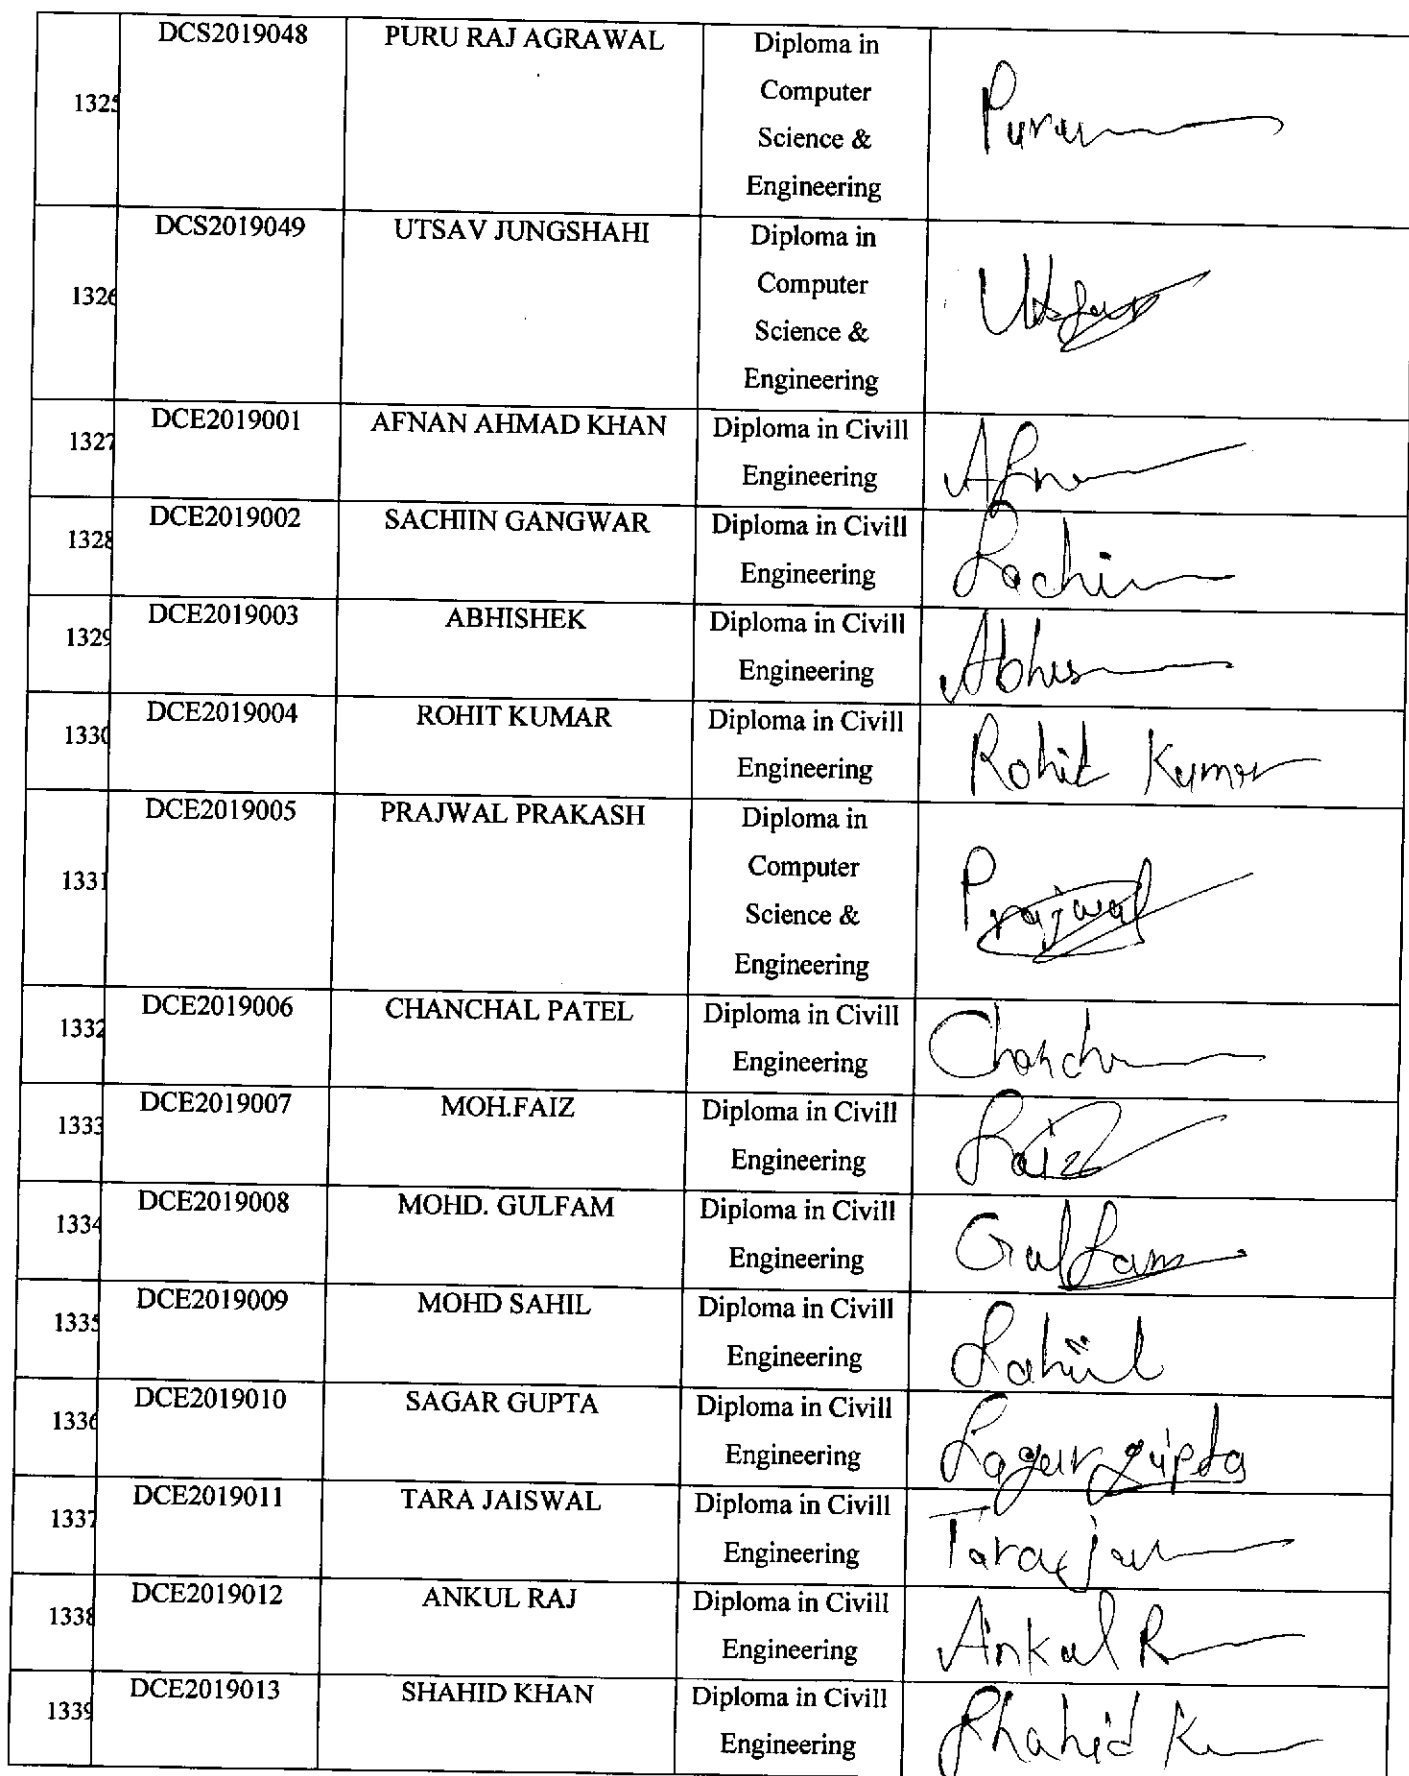 DCS2019048 PURU RAJ AGRAWAL Diploma in
Computer
1325
Science &
Engineering
Puru
DCS2019049 UTSAV JUNGSHAHI Diploma in
Computer
1326
Science &
Engineering
Utsav
DCE2019001 AFNAN AHMAD KHAN Diploma in Civill
1327
Engineering
Afn
DCE2019002 SACHIIN GANGWAR Diploma in Civill
1328
Engineering
Sachin
DCE2019003 ABHISHEK Diploma in Civill
1329
Engineering
Abhis
DCE2019004 ROHIT KUMAR Diploma in Civill
1330
Engineering
Rohit Kumar
DCE2019005 PRAJWAL PRAKASH Diploma in
Computer
1331
Science &
Engineering
Prajwal
DCE2019006 CHANCHAL PATEL Diploma in Civill
1332
Engineering
Chanch
DCE2019007 MOH.FAIZ Diploma in Civill
1333
Engineering
Faiz
DCE2019008 MOHD. GULFAM Diploma in Civill
1334
Engineering
Gulfam
DCE2019009 MOHD SAHIL Diploma in Civill
1335
Engineering
Sahil
DCE2019010 SAGAR GUPTA Diploma in Civill
1336
Engineering
Sagar gupta
DCE2019011 TARA JAISWAL Diploma in Civill
1337
Engineering
Tara jai
DCE2019012 ANKUL RAJ Diploma in Civill
1338
Engineering
Ankul R
DCE2019013 SHAHID KHAN Diploma in Civill
1339
Engineering
Shahid K